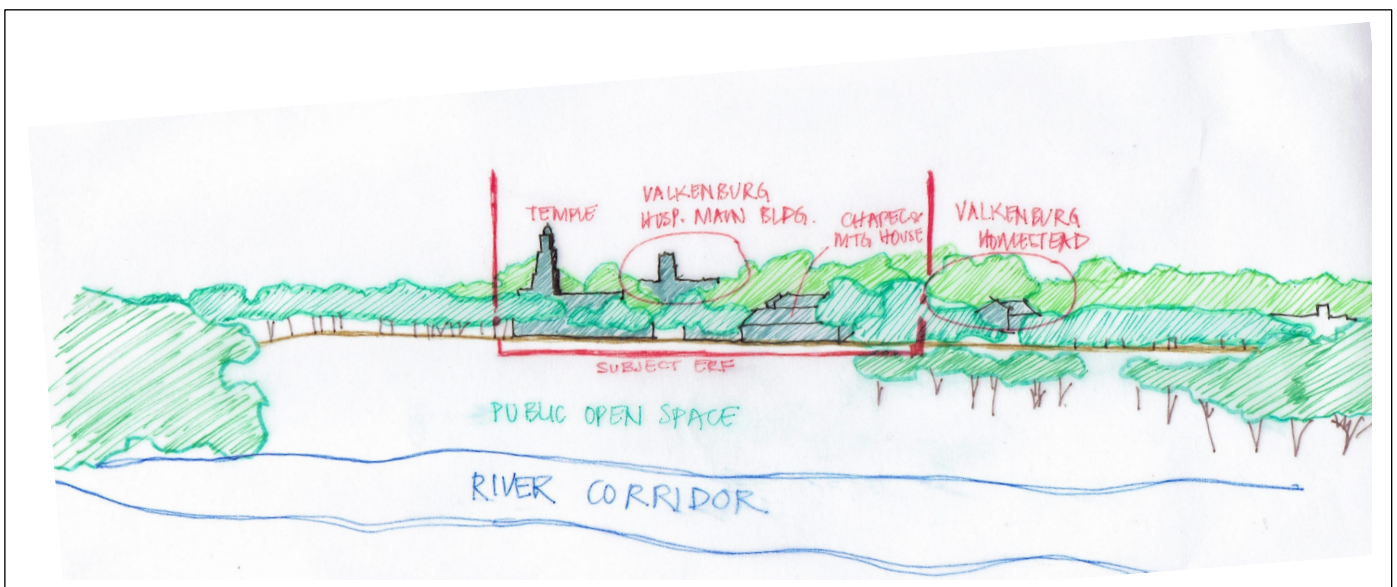 TEMPLE
VALKENBURG
HOSP. MAIN BLDG.
CHAPEL &
MTG HOUSE
VALKENBURG
HOMESTEAD
SUBJECT ERF
PUBLIC OPEN SPACE
RIVER CORRIDOR